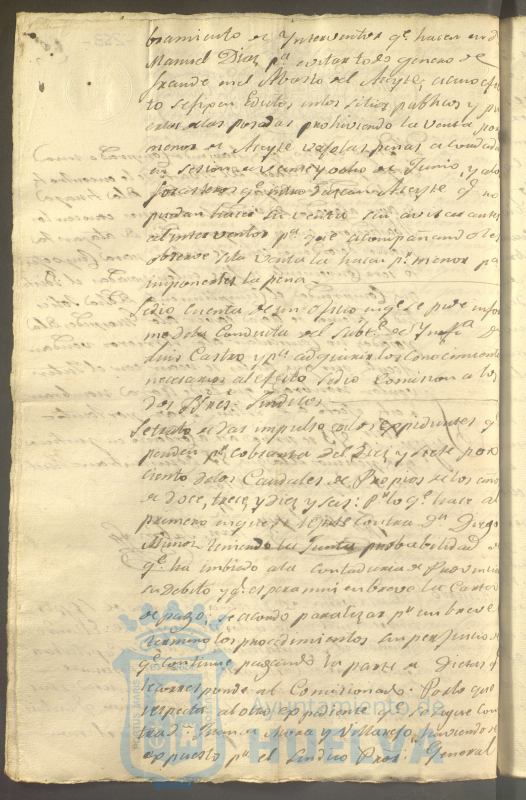 bramiento de Interventor qe hacen en Dn
Manuel Diaz pa evitar todo genero de
fraude en el Abasto del Aceyte, a cuio efec
to se fixen Edictos en los sitios publicos y pu
ertas de las posadas prohiviendo la venta por
menor de Aceyte vajo las penas acordadas
en sesion de veinte y ocho de Junio, y a los
forasteros qe Aceyte qe no
puedan hacer la venta sin avisar antes
al interventor pa que acompañandoles
observe si la venta la hacen pr menor pa
imponerles la pena
Se dio Cuenta de un Oficio en qe se pide infor
me de la Conducta del Subte de Ynfa Dn
Luis Castro y pa adquirir los Conocimientos
necesarios al efecto se dio Comision a los
dos Sres Sindicos
Se trato de dar impulso a los expedientes qe
penden pr cobranza del Diez y siete por
ciento de los Caudales de Propios de los años
de doce, trece, y diez y seis: Pr lo qe hace al
primero en qe se contra Dn Diego
Muñoz teniendo la probabilidad de
qe ha imbiado a la Contaduria de Provincia
su Debito y qe espera mui en breve la Carta
de pago, se acordo paralizar pr un breve
termino los procedimientos sin perjuicio de
qe continue pagando la parte de Dietas qe
le corresponde al Comisionado. Por lo que
respecta al otro expediente qe se sigue con
tra Dn Mora y Villarejo, haviendose
expuesto pr el Sindico Pror General
Ayuntamiento de
HUELVA